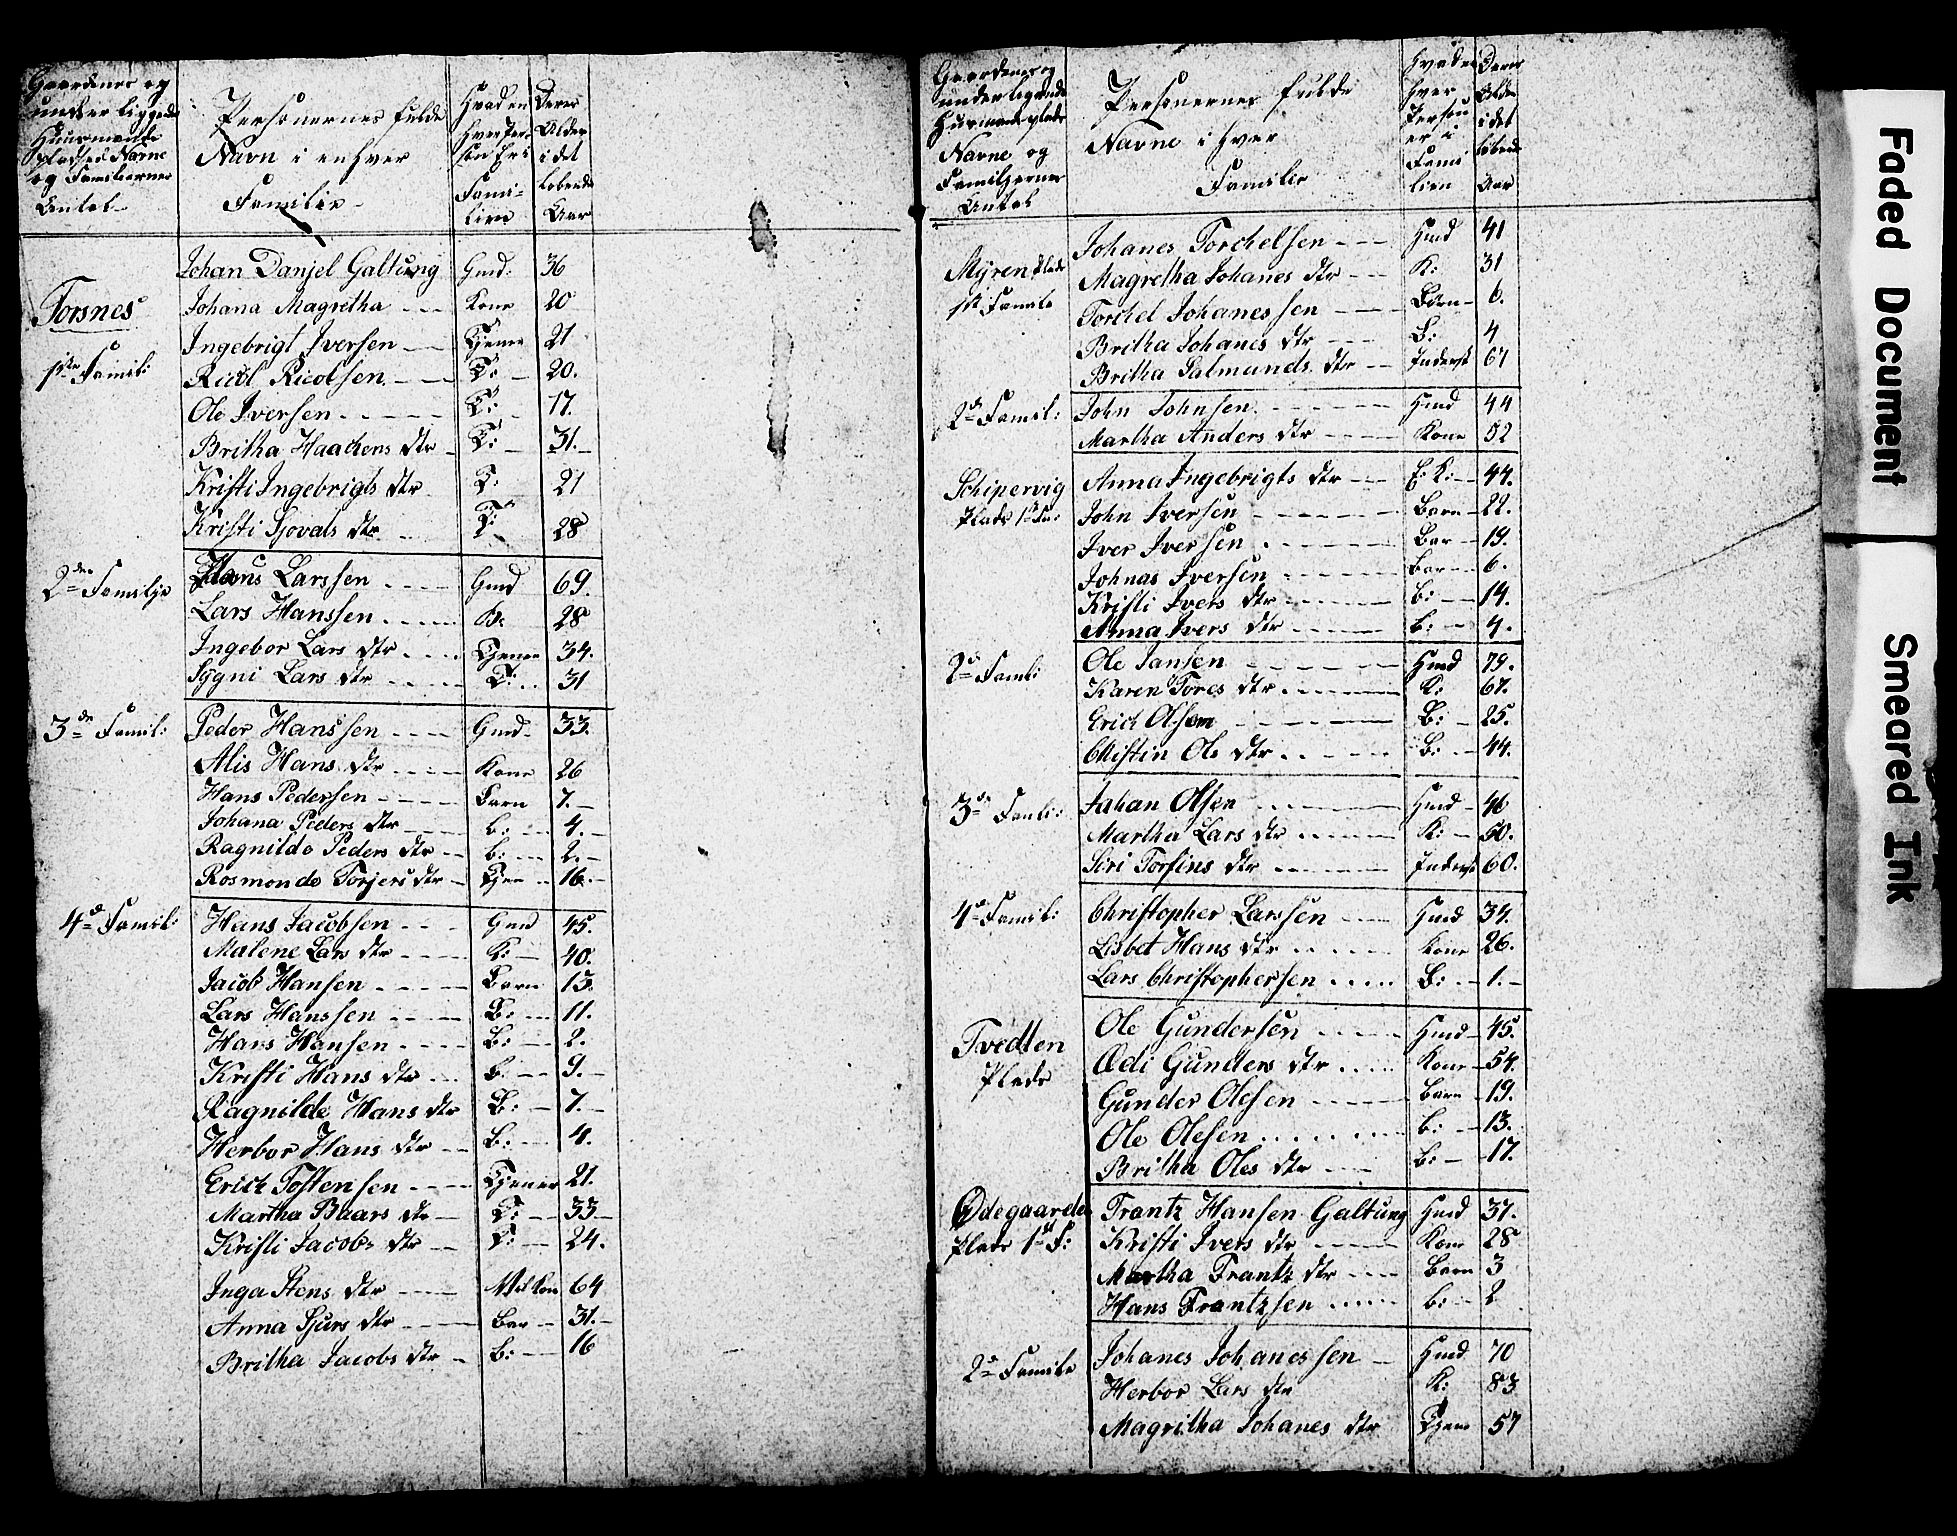 Gaardenes og
underliggende
Huusmænds
Pladses Navne
og Familiernes
Antal
Personernes fulde
Navn i enhver
Familie
Hvad en
hver Per-
son er i
Fami-
lien
Deres
Alder
i det
løbende
Aar
Torsnes
1ste Famil:
Johan Danjel Galtung Gmd: 36
Johana Magretha Kone 20
Ingebrigt Iversen Tjener 21
Ricol Ricolsen T: 20.
Ole Iversen T: 17.
Britha Haachens dtr T: 31.
Kristi Ingebrigts dtr T: 21
Kristi Sjovals dtr T: 28
2den Familje
Hans Larssen Gmd 69.
Lars Hanssen B: 28
Ingebor Lars dtr Tjener 34.
Sygni Lars dtr T: 31
3de Famil:
Peder Hanssen Gmd 33.
Alis Hans dtr Kone 26
Hans Pedersen Barn 7.
Johana Peders dtr b: 4.
Ragnilde Peders dtr b: 2.
Rosmonde Torjers dtr Tjen 16.
4de Famil:
Hans Jacobsen Gmd 45.
Malene Lars dtr K: 40.
Jacob Hansen Barn 15.
Lars Hanssen B: 11.
Hans Hansen B: 2.
Kristi Hans dtr b: 9.
Ragnilde Hans dtr B: 7.
Herbor Hans dtr B: 4.
Erich Tostensen Tjener 21.
Martha Baars dtr T: 33
Kristi Jacobs dtr T: 24.
Inga Stens dtr 64
Anna Sjurs dtr Bar 31.
Britha Jacobs dtr b: 16
Gaardenes og
underligende
Husmandsplads
Navne og
Familjernes
Antal
Personernes fulde
Navne i hver
Familie
Hvad en
hver
Person
er i
Fami
lien
Deres
Alder
i det
løbende
Aar
Myren Plads
1st Familie
Johanes Torchelsen Hmd 41
Magretha Johanes dtr K: 31
Torchel Johanessen Barn 6.
Britha Johanes dtr B: 4
Britha Salmunds dtr Inderst 67
2de Famil:
John Johnsen Hmd 44
Martha Anders dtr Kone 52
Schipervig
Plads 1st Fa:
Anna Ingebrigts dtr E: K: 44.
John Iversen Barn 22.
Iver Iversen Bar 19.
Johnas Iversen bar 6.
Kristi Ivers dtr b: 14.
Anna Ivers dtr b: 4.
2de Famil:
Ole Jansen Hmd 79.
Karen Tores dtr K: 67.
Erich Olsen B: 25.
Christin Ols dtr B: 44.
3de Famil:
Johan Olsen Hmd 46
Martha Lars dtr K: 50.
Siri Torfins dtr Inderst 60.
4de Famil:
Christopher Larssen Hmd 34.
Lisbet Hans dtr Kone 26.
Lars Christophersen B: 1.
Tvedten
Plads
Ole Gundersen Hmd 45.
Ædi Gunders dtr Kone 54.
Gunder Olesen Barn 19.
Ole Olesen b: 13.
Britha Oles dtr b: 17.
Ødegaarden
Plads 1st F:
Frantz Hansen Galtung Hmd 37.
Kristi Ivers dtr Kone 28
Martha Frantz dtr Barn 3
Hans Frantzsen b: 2
2de Familie
Johanes Johanessen Hmd 70
Herbor Lars dtr K: 83
Magritha Johanes dtr Tjener 57
Faded Document
Smeared Ink